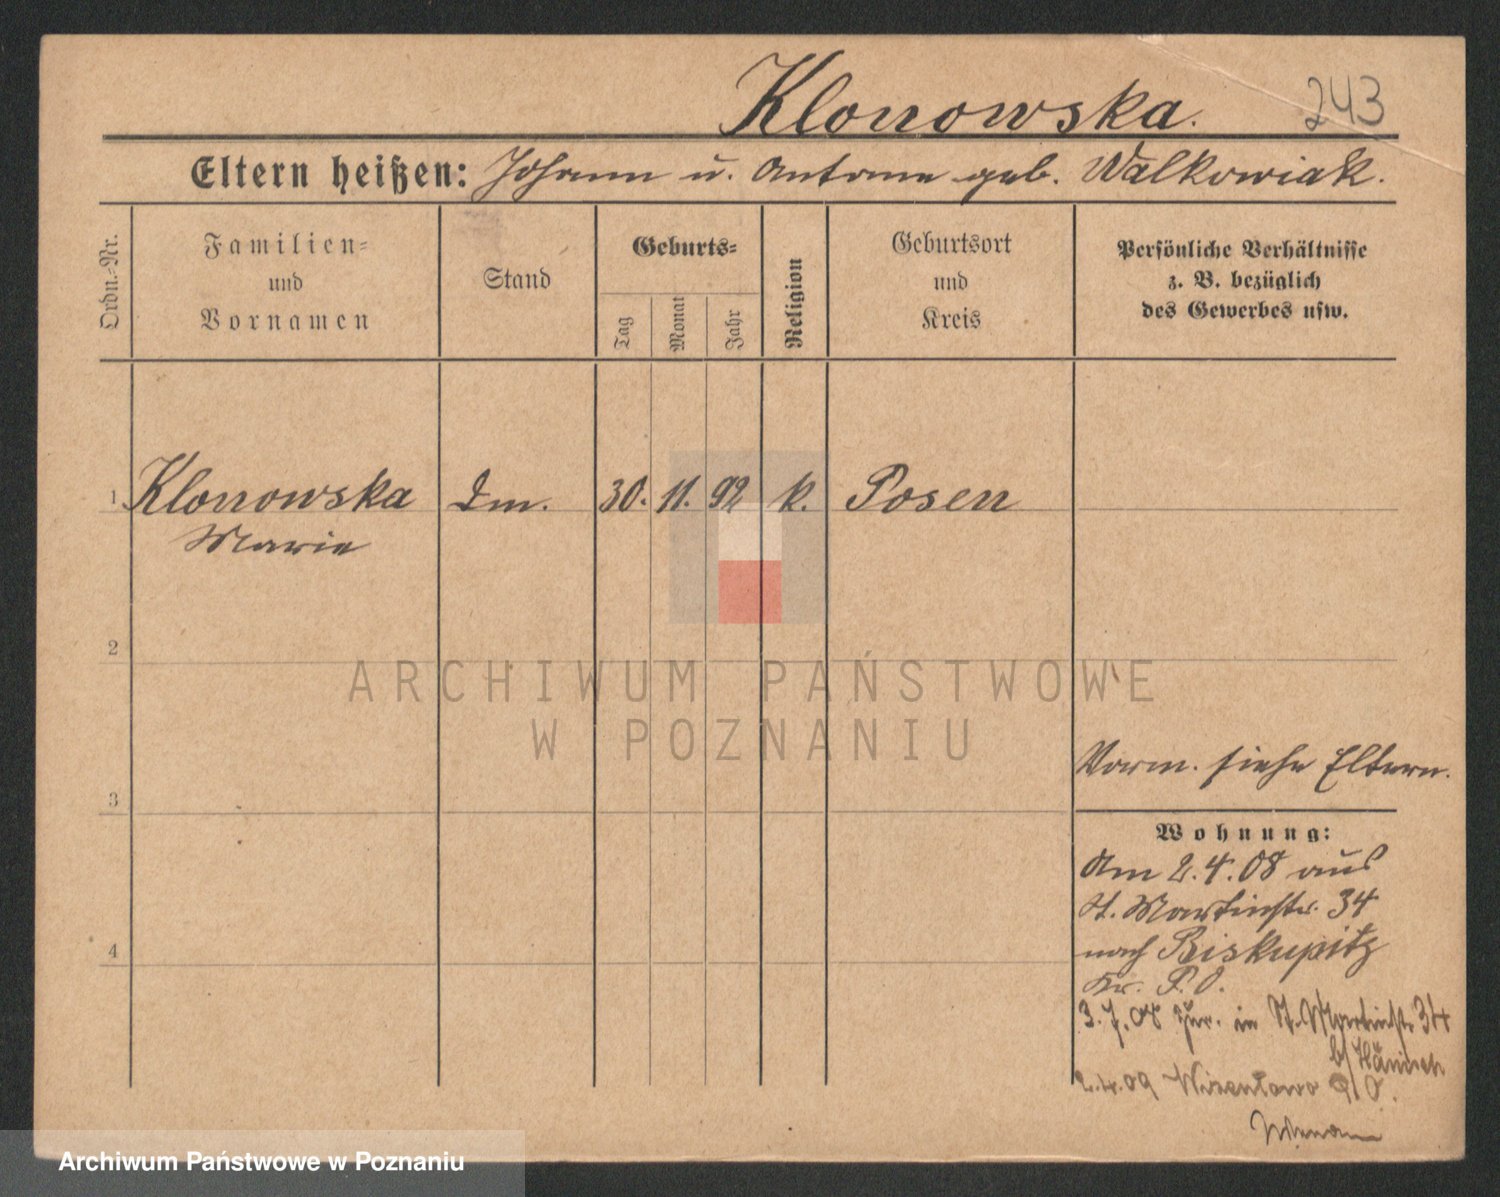 Klonowska.
243
Eltern heißen: Johann u. Antonie geb. Walkowiak.
Ordn.-Nr.
Familien-
und
Vornamen
Stand
Geburts-
Tag
Monat
Jahr
Religion
Geburtsort
und
Kreis
Persönliche Verhältnisse
z. B. bezüglich
des Gewerbes usw.
1 Klonowska Dm. 30. 11. 92 k. Posen
Marie
2
ARCHIWUM PAŃSTWOWE
W POZNANIU
Vorm. siehe Eltern.
3
Wohnung:
Am 2.4.08 aus
St. Martinstr. 34
nach Biskupitz
4
Kr. P. O.
3.7.08 zur. in St. Martinstr 34
b/
2.4.09 P/O.
Archiwum Państwowe w Poznaniu